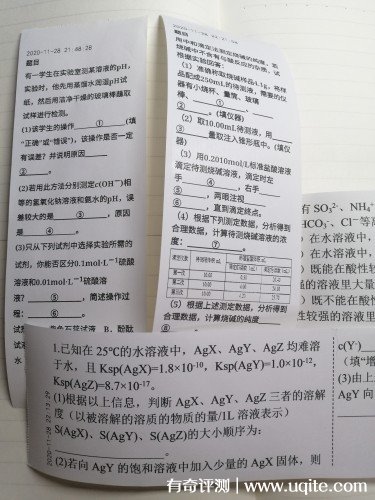 2020-11-28 21 48 28
题目
有一学生在实验室测某溶液的pH,
实验时，他先用蒸馏水润湿pH试
纸，然后用洁净干燥的玻璃棒蘸取
试样进行检测。
(1)该学生的操作 ① (填
“正确”或“错误”)，该操作是否一定
有误差？并说明原因
②。
(2)若用此方法分别测定c(OH⁻)相
等的氢氧化钠溶液和氨水的pH，误
差较大的是 ③，原因
是 ④。
(3)只从下列试剂中选择实验所需的
试剂，你能否区分0.1mol·L⁻¹硫酸
溶液和0.01mol·L⁻¹硫酸溶
液？ ⑤，简述操作过
程： ⑥。
题目
根据实验回答：
(1) 准确称取烧碱样品4.1g，将样
品配成250mL的待测液，需要的仪
器有小烧杯、量筒、玻璃
棒、 ①、
②。(填仪器)
(2) 取10.00mL待测液，用
③ 量取注入锥形瓶中。(填仪
器)
(3) 用0.2010mol/L标准盐酸溶液
滴定待测烧碱溶液，滴定时左
手 ④，右手
⑤，两眼注视
⑥，直到滴定终点。
(4) 根据下列测定数据，分析得到
合理数据，计算待测烧碱溶液的浓
度： ⑦
(5) 根据上述测定数据，分析得到
合理数据，计算烧碱的纯度
有 SO₃²⁻、NH₄⁺
HCO₃⁻、Cl⁻等
在水溶液中，
在水溶液中，
既能在酸性
强的溶液里大量
既不能在酸性
强的溶液里
1.已知在 25℃的水溶液中，AgX、AgY、AgZ 均难溶
于水，且 Ksp(AgX)=1.8×10⁻¹⁰，Ksp(AgY)=1.0×10⁻¹²，
Ksp(AgZ)=8.7×10⁻¹⁷。
(1)根据以上信息，判断 AgX、AgY、AgZ 三者的溶解
度（以被溶解的溶质的物质的量/1L 溶液表示）
S(AgX)、S(AgY)、S(AgZ)的大小顺序为:
(2)若向 AgY 的饱和溶液中加入少量的 AgX 固体，则
c(Y⁻)
(填“增
(3)由上
AgY 向
有奇评测 | www.uqite.com